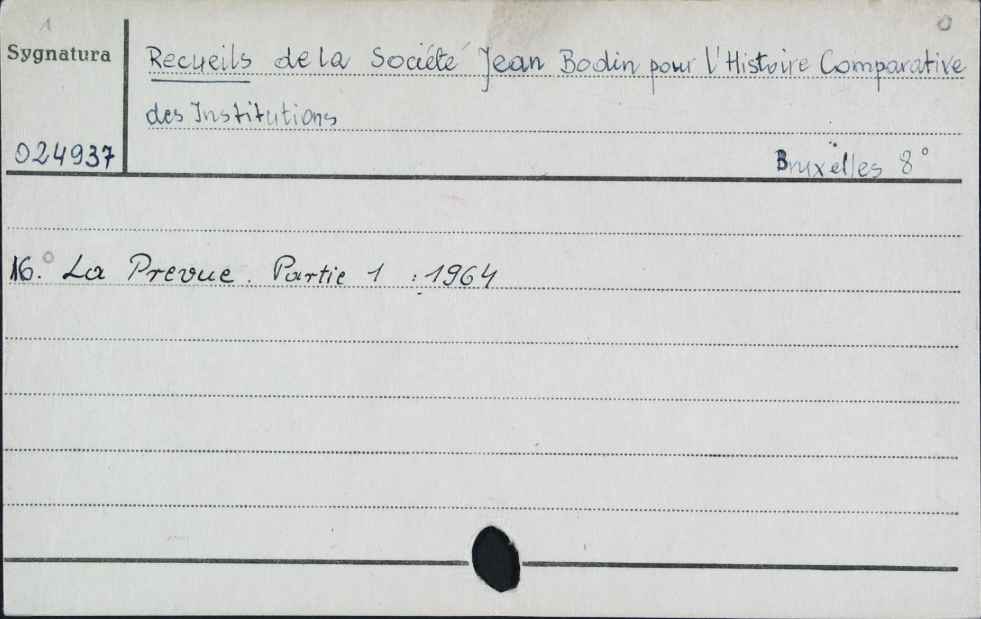 1
0
Sygnatura
Recueils de la Société Jean Bodin pour l'Histoire Comparative
des Institutions
024937
Bruxëlles 8°
16.° La Prevue. Partie 1 : 1964